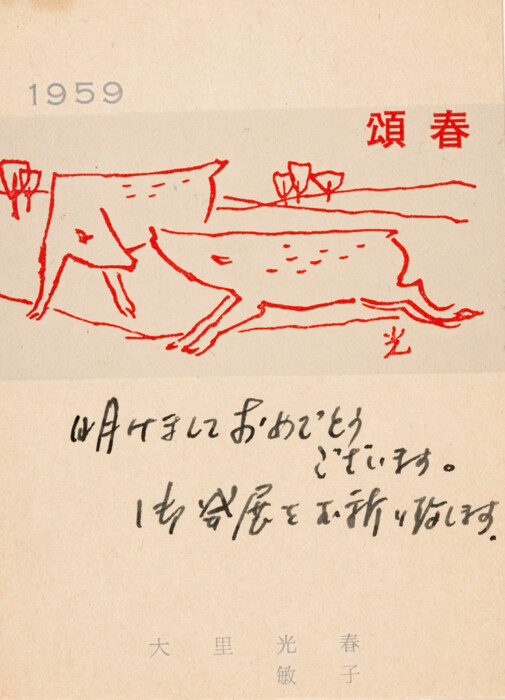 1959
頌春
光
明けましておめでとう
ございます。
御発展をお祈り致します.
大里光春
敏子